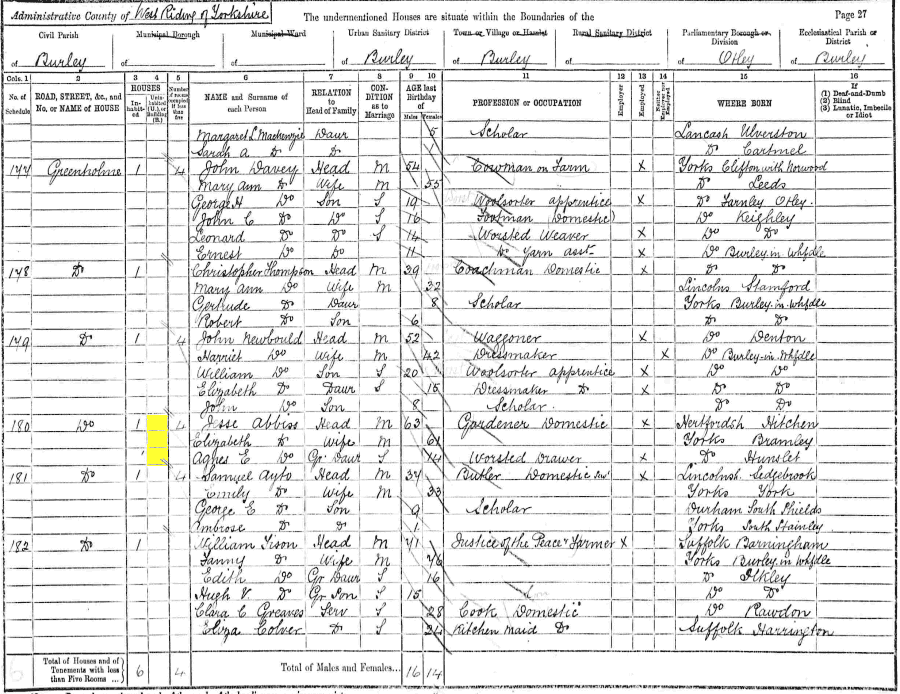 Administrative County of West Riding of Yorkshire The undermentioned Houses are situate within the Boundaries of the Page 27
Civil Parish Municipal Borough Municipal Ward Urban Sanitary District Town or Village or Hamlet Rural Sanitary District Parliamentary Borough or Division Ecclesiastical Parish or District
of Burley of of of Burley of Burley of of Otley of Burley
Cols. 1 2 3 4 5 6 7 8 9 10 11 12 13 14 15 16
No. of Schedule ROAD, STREET, &c., and No. or NAME of HOUSE HOUSES Inhabited Uninhabited (U.), or Building (B.) Number of rooms occupied if less than five NAME and Surname of each Person RELATION to Head of Family CONDITION as to Marriage AGE last Birthday of Males Females PROFESSION or OCCUPATION Employer Employed Neither WHERE BORN If (1) Deaf-and-Dumb (2) Blind (3) Lunatic, Imbecile or Idiot
Margaret L Mackenzie Daur 5 Scholar Lancash Ulverston
Sarah A Do Do 1 Do Cartmel
177 Greenholme 1 4 John Davey Head M 54 Cowman on Farm X Yorks Clifton with Norwood
Mary Ann Do Wife M 55 Do Leeds
George H Do Son S 19 Woolsorter apprentice X Do Farnley Otley
John C Do Do S 16 Footman (Domestic) Do Keighley
Leonard Do Do S 14 Worsted Weaver X Do Do
Ernest Do Do 11 Do Yarn asst X Do Burley in Whfdle
178 Do 1 Christopher Thompson Head M 39 Coachman Domestic X Do Do
Mary Ann Do Wife M 32 Lincolns Stamford
Gertrude Do Daur 8 Scholar Yorks Burley in Whfdle
Robert Do Son 6 Do Do
179 Do 1 4 John Newbould Head M 52 Waggoner X Do Denton
Harriet Do Wife M 42 Dressmaker X Do Burley in Whfdle
William Do Son S 20 Woolsorter apprentice X Do Do
Elizabeth Do Daur S 15 Dressmaker Do X Do Do
John Do Son 8 Scholar Do Do
180 Do 1 4 Jesse Abbiss Head M 63 Gardener Domestic X Hertfordsh Hitchen
Elizabeth Do Wife M 61 Yorks Bramley
Agnes E Do Gr Daur S 14 Worsted Drawer X Do Hunslet
181 Do 1 4 Samuel Ayto Head M 37 Butler Domestic X Lincolnsh Sedgebrook
Emily Do Wife M 33 Yorks York
George E Do Son 9 Scholar Durham South Shields
Ambrose Do Do 1 Yorks South Stainley
182 Do 1 William Fison Head M 71 Justice of the Peace & Farmer X Suffolk Barningham
Fanny Do Wife M 76 Yorks Burley in Whfdle
Edith Do Gr Daur S 16 Do Ilkley
Hugh V Do Gr Son S 15 Do Do
Clara C Greaves Serv S 28 Cook Domestic Do Rawdon
Eliza Colver Do S 24 Kitchen Maid Do Suffolk Harrington
Total of Houses and of Tenements with less than Five Rooms ... 6 4 Total of Males and Females... 16 14